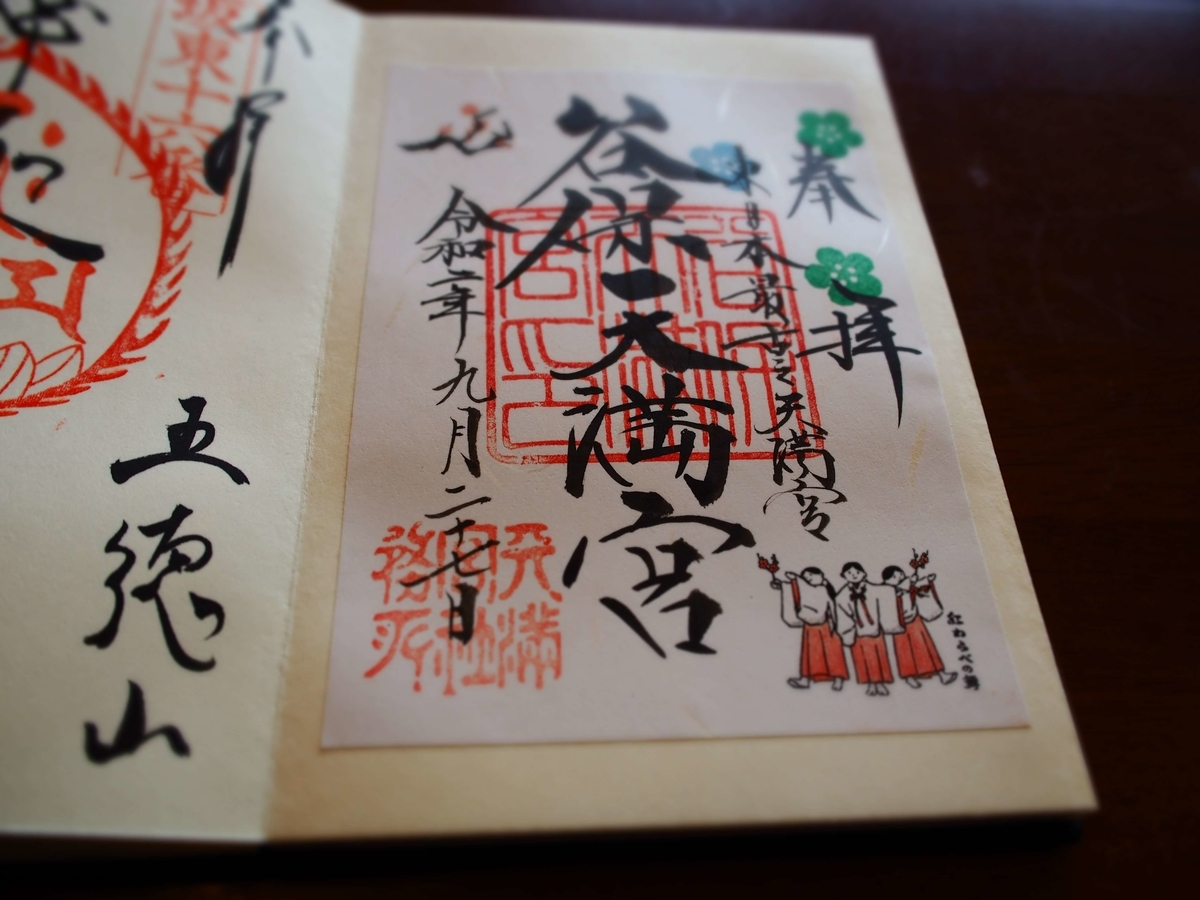 奉拝
東日本最古之天満宮
谷保天満宮
令和二年九月二十七日
天満宮社務所
紅わらべの舞
奉拝
坂東十六番
五徳山